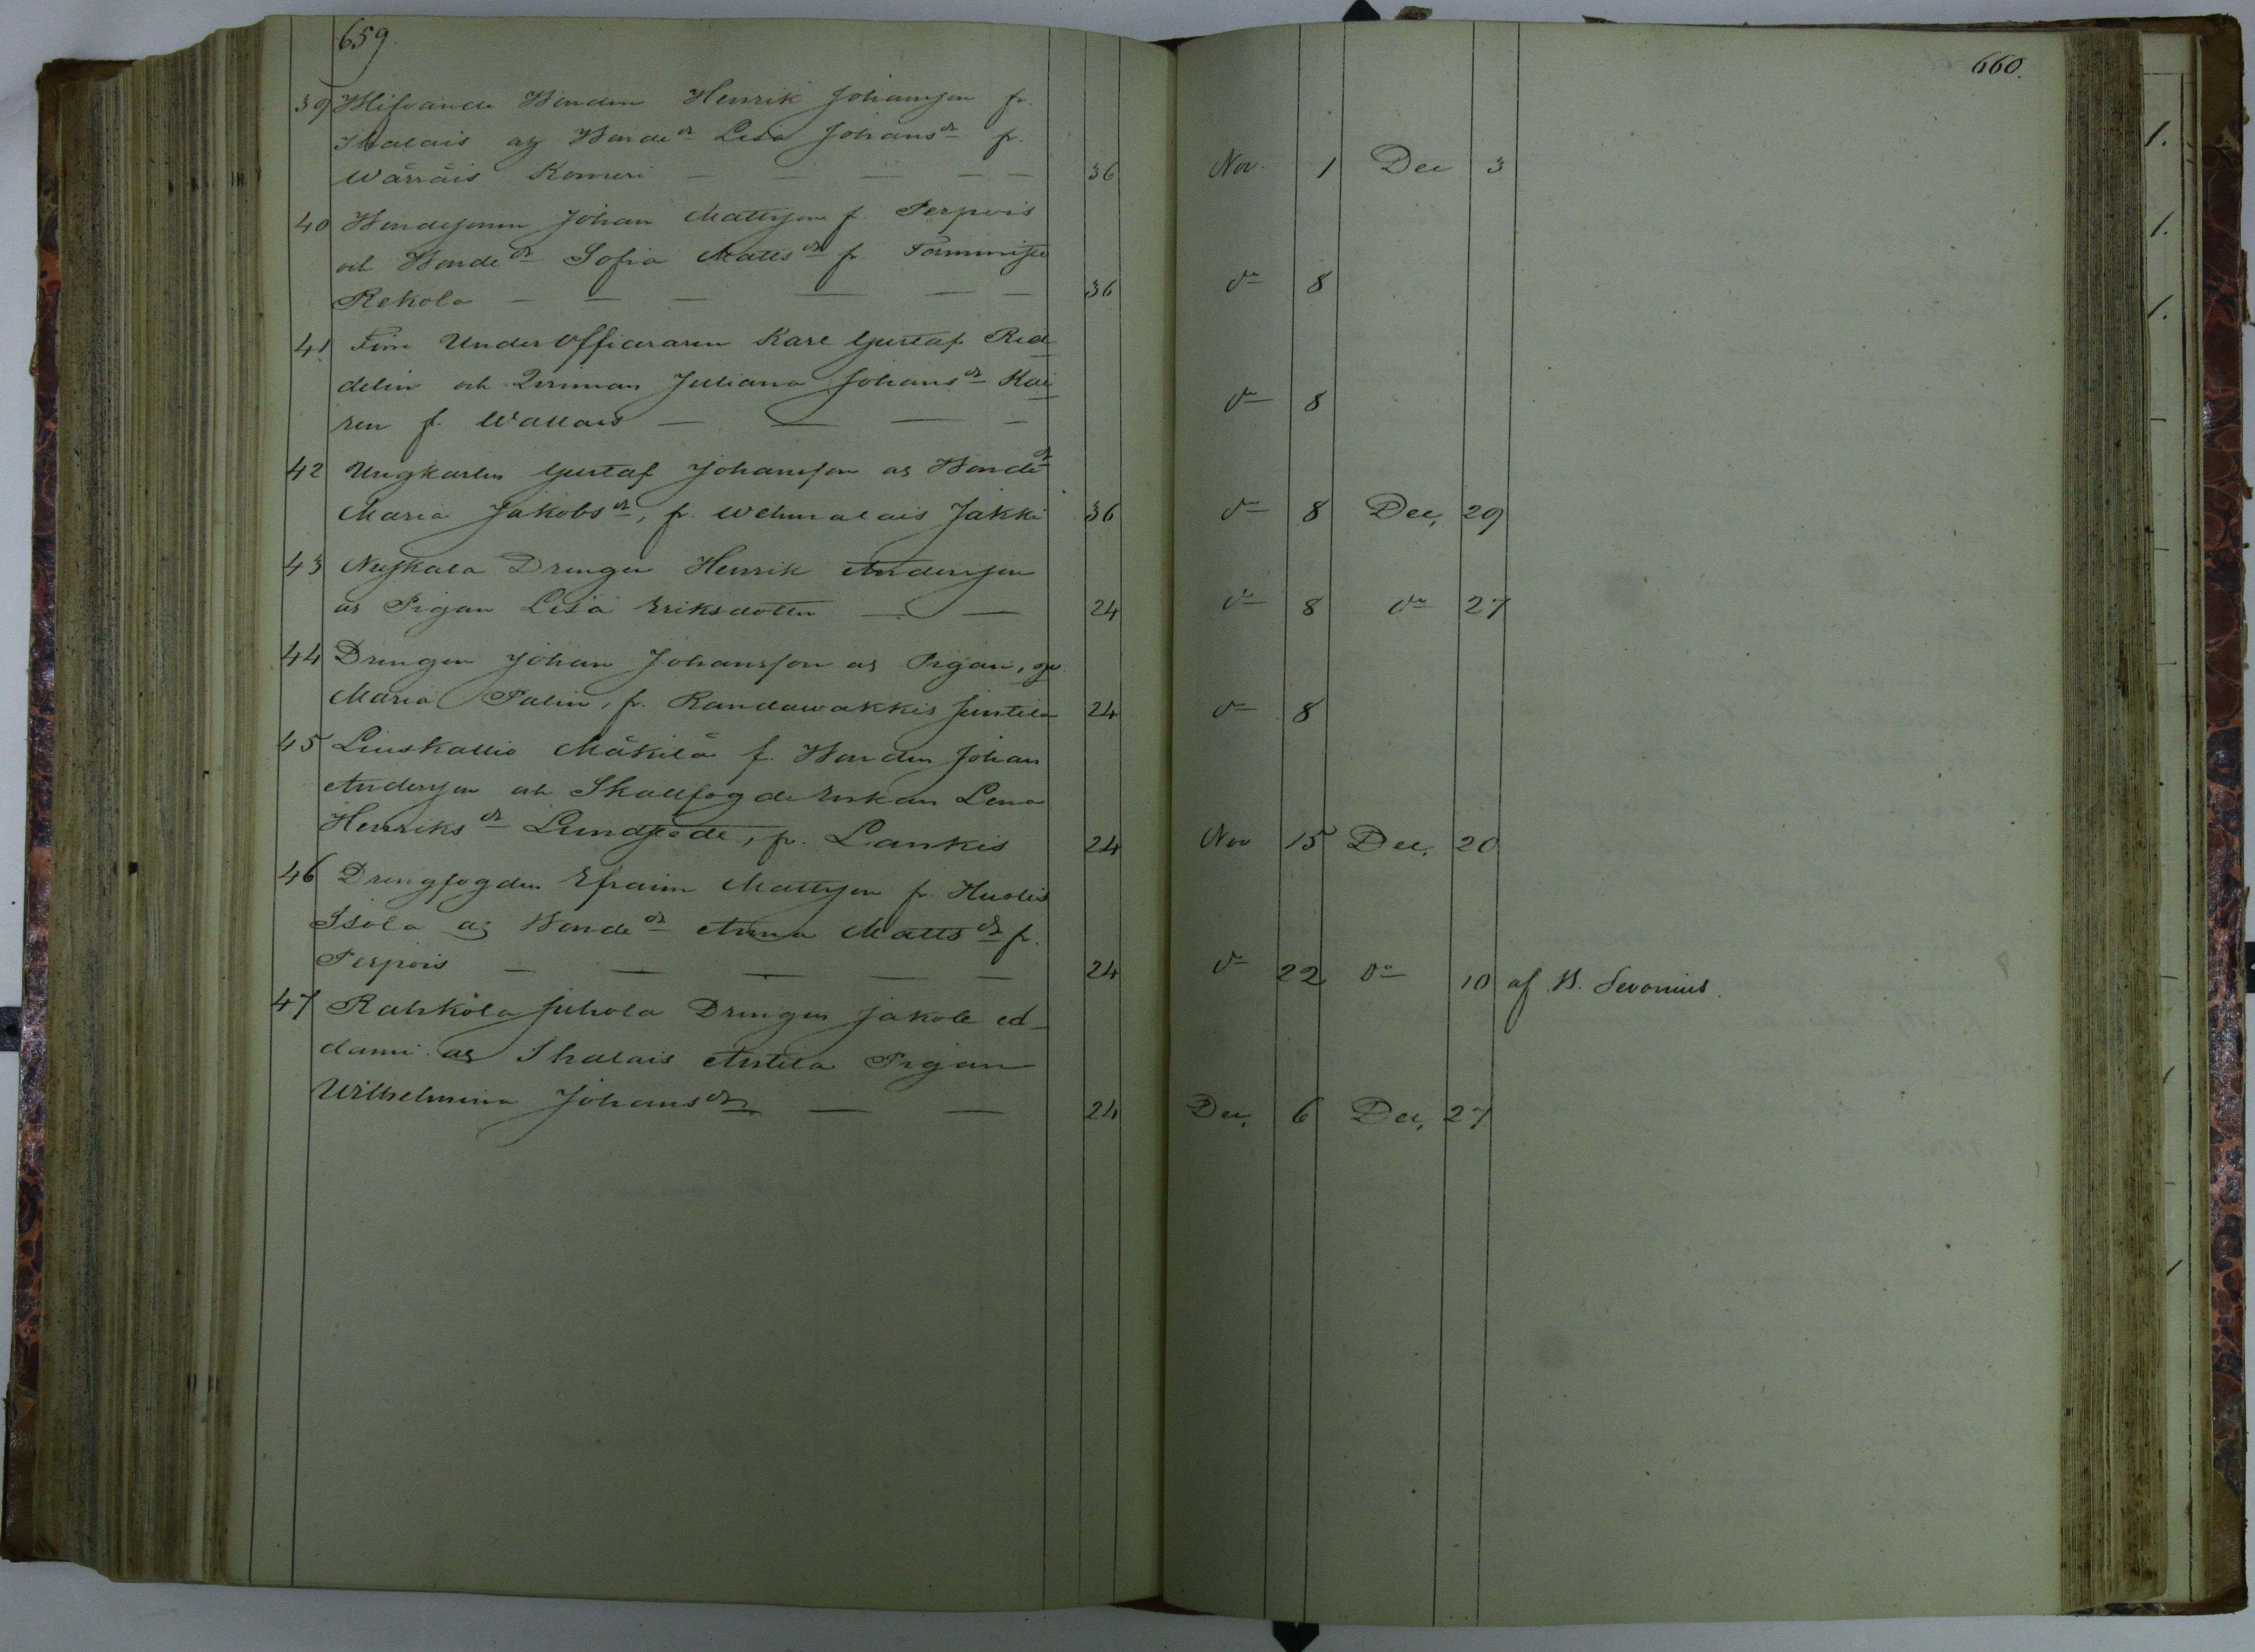 659.
660.
39 Blifvande Bonden Henrik Johansson fr.
Ihalais ag Bonde dr Lisa Johans dr fr.
Wäräis Komeri — — — — — 36 Nov. 1 Dec 3
40 Bondesonen Johan Mattsson f. Perpois
och Bonde dr Sofia Matts dr fr. Tammisto
Rekola — — — — — — 36 do 8
41 Förre Underofficeraren Karl Gustaf Red
delin och Qvinnan Juliana Johans dr Kai
ren f. Wallais — — — — do 8
42 Ungkarlen Gustaf Johansson ag Bonde dr
Maria Jakobs dr, fr. Wehmalais Jakki 36 do 8 Dec, 29
43 Nuskala Drengen Henrik Andersson
ag Pigan Lisa Eriksdotter — — 24 do 8 do 27
44 Drengen Johan Johansson ag Pigan,
Maria Palin, fr. Randawakkis Juntila 24 do 8
45 Liuskallio Mäkilä f. Bonden Johan
Andersson och Skallfogde Enkan Lena
Henriks dr Lundstede, fr. Lankis 24 Nov 15 Dec, 20
46 Drengfogden Efraim Mattsson fr. Huolis
Isola ag Bonde dr Anna Matts dr fr.
Perpois — — — — — 24 do 22 do 10 af B. Sevonius.
47 Rahkola Juhola Drengen Jakob Ad-
dami ag Ihalais Antila Pigan
Wilhelmina Johans dr — — 24 Dec, 6 Dec, 27
1.
1.
1.